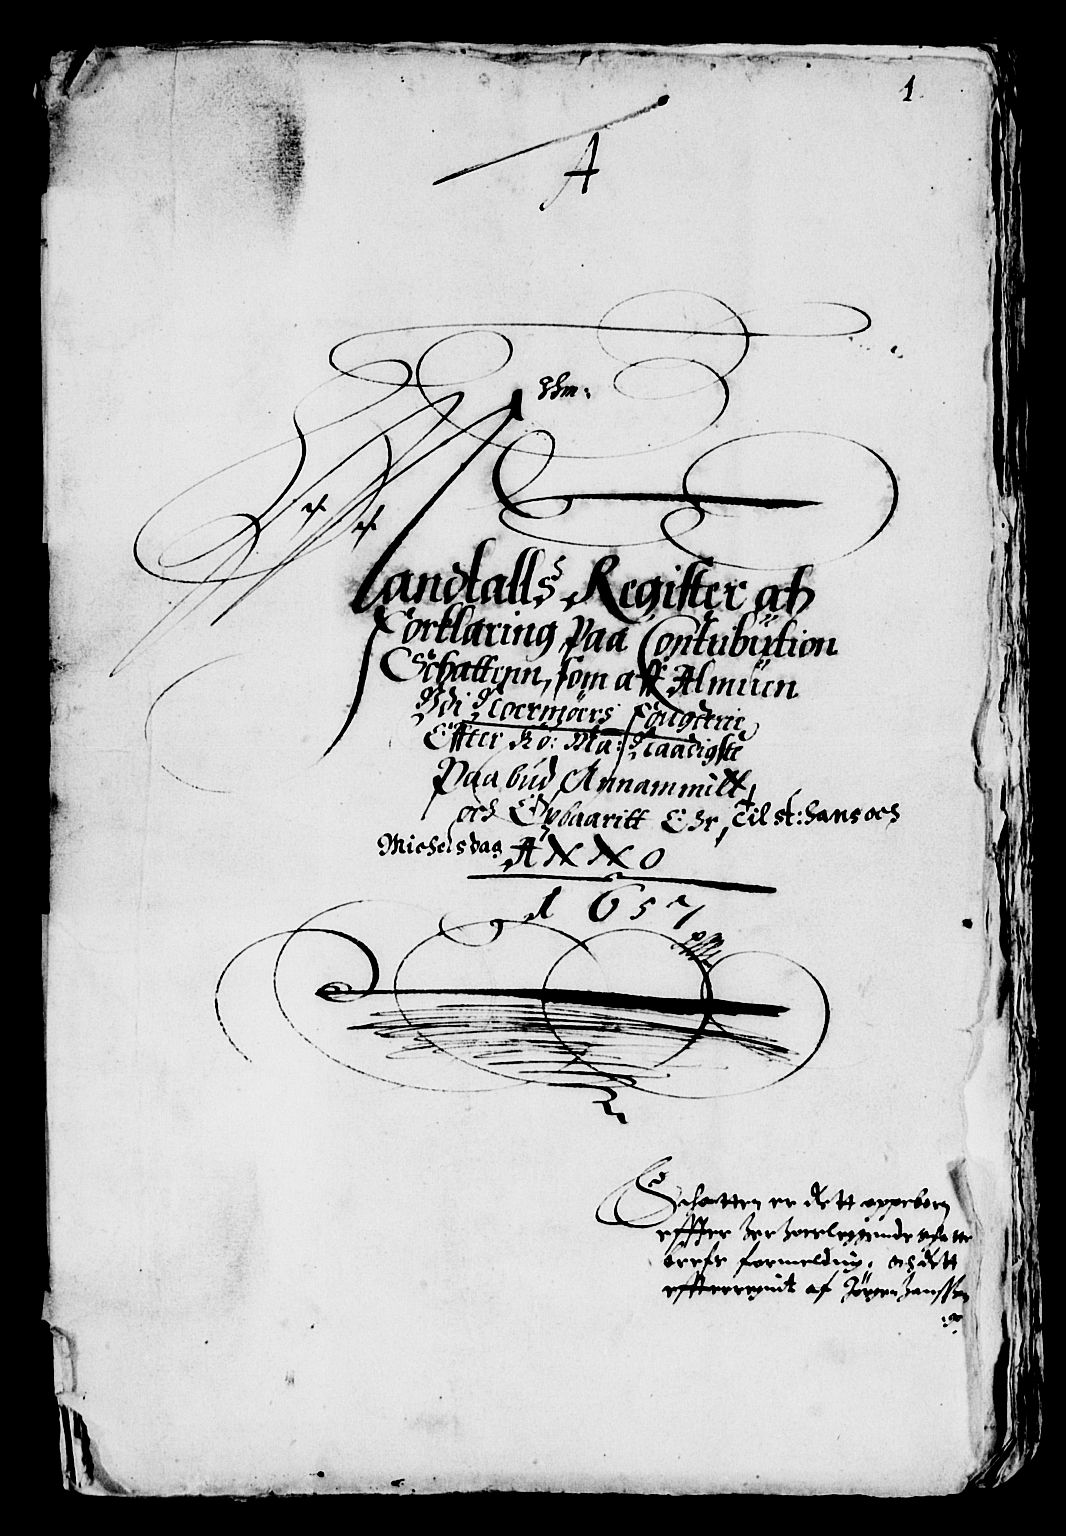 1
A
Mandtalls Register och
Forklaring paa Contribution
Schattenn, som aff Almuen
Vdi Noermøers fougderie
Effter Ko: Ma: Naadigste
Paabud Annammitt
och Opbaaritt Ehr, Til St: Hans och
Michelsdag ANNO
1657
Schatten er dett oppeborn
effter her hoesleggende schatte
brefs formelding, och dett
effterregnit af Jørgen Hanssen